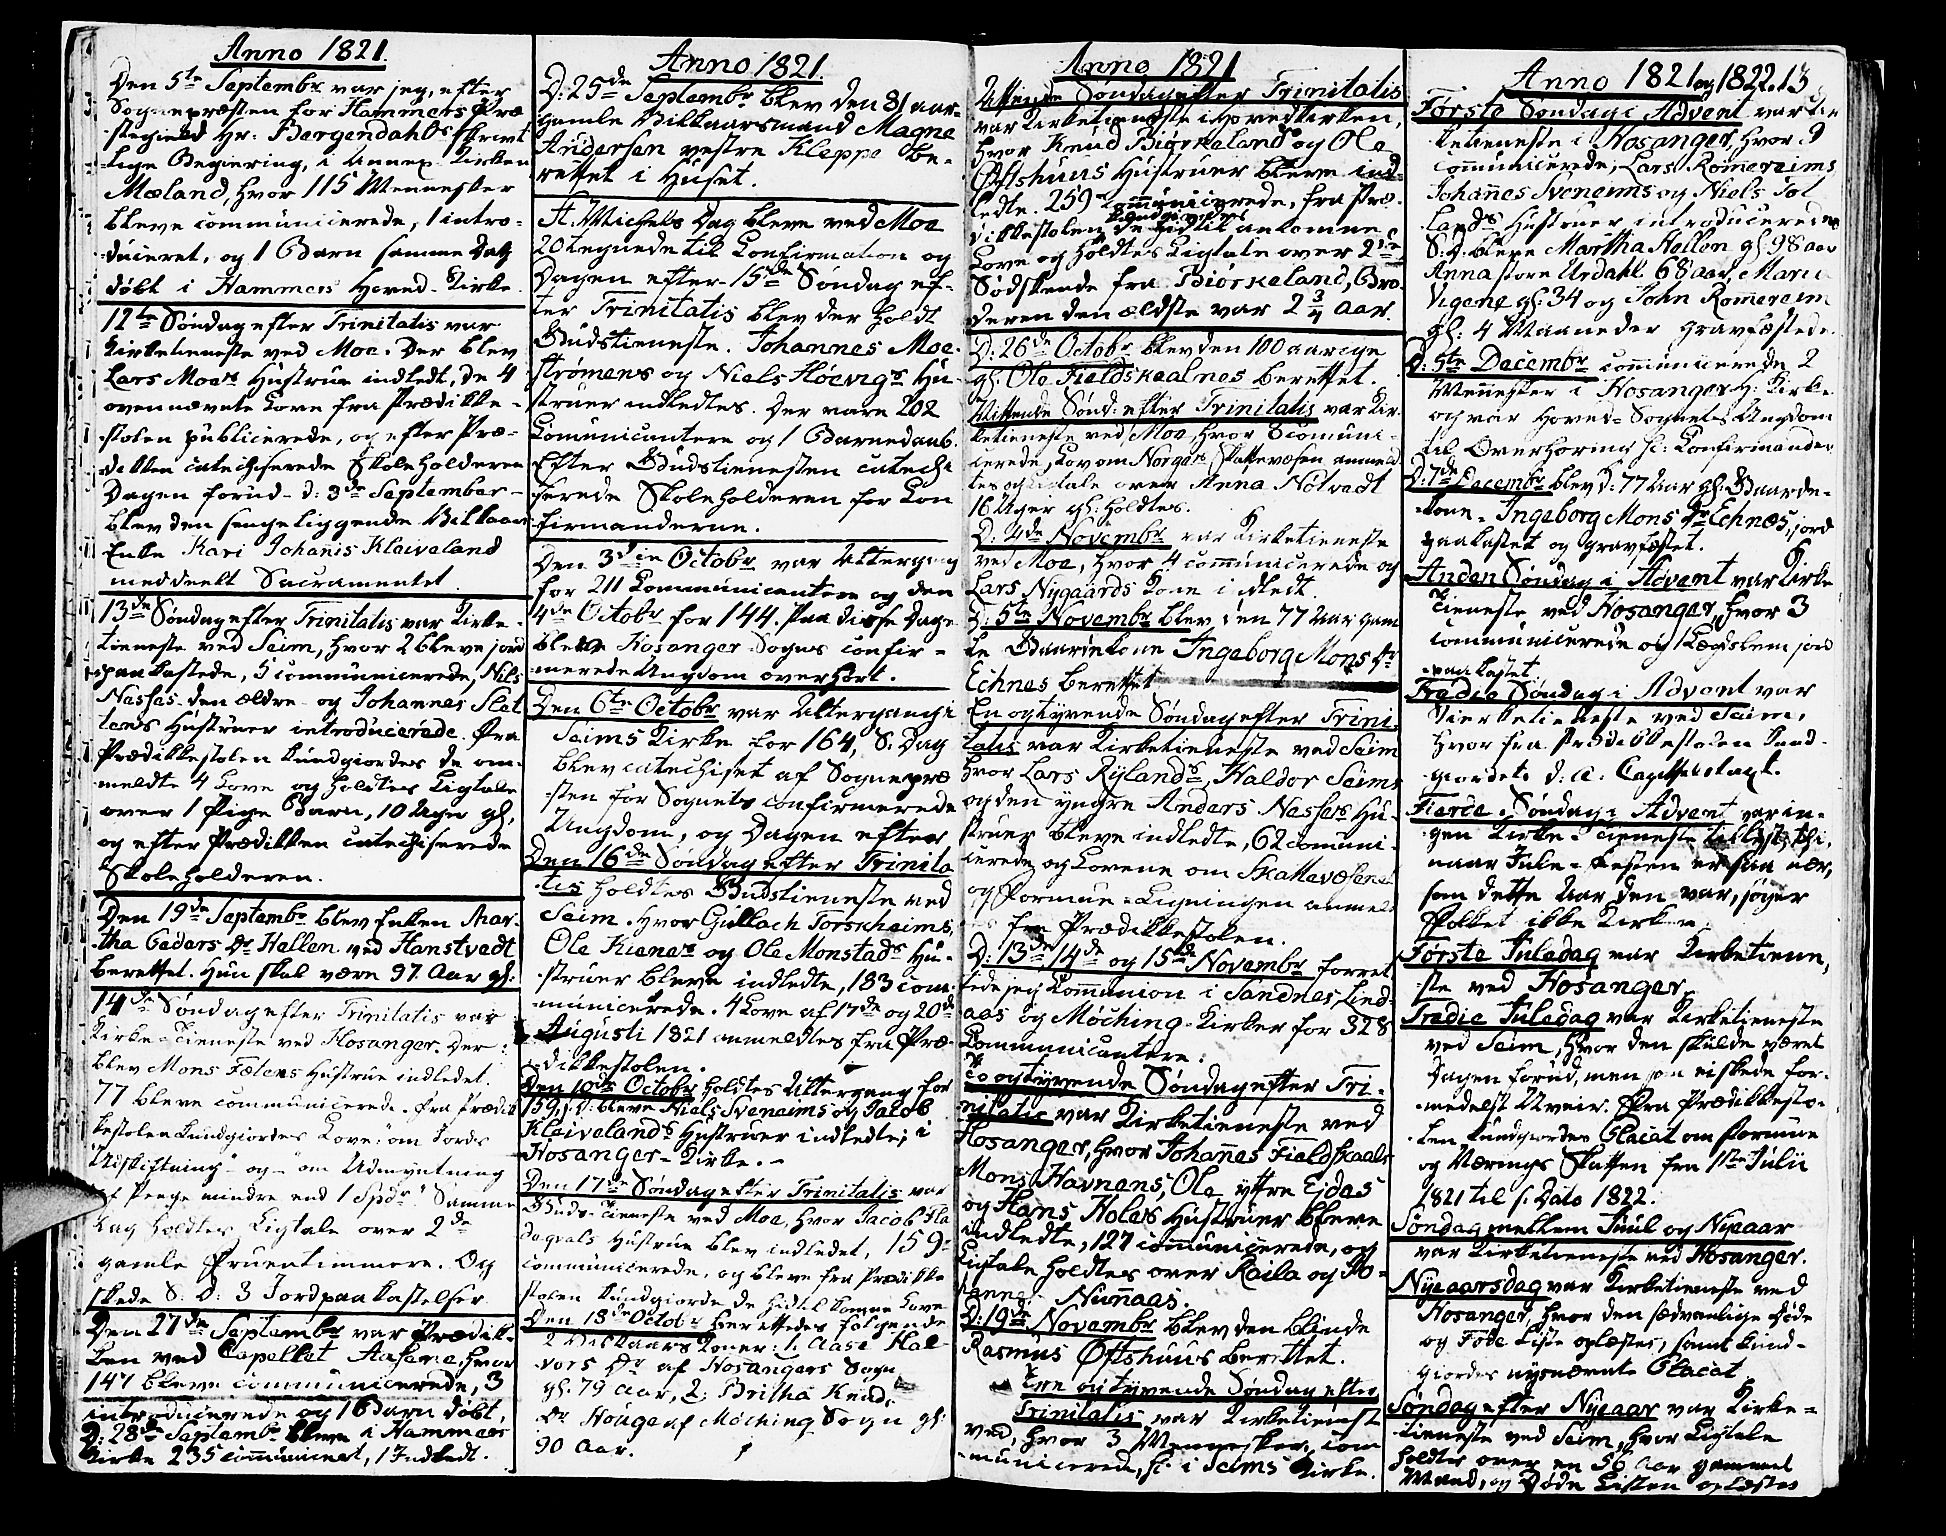 Anno 1821.
Den 5te Septembr var jeg, efter
Sognepræsten for Hammers Præ
stegield Hr: Bergendahls skrivt
lige Begiering, i Annex-Kirken
Mæland, hvor 115 Mennesker
bleve communicerede, 1 intro-
duceret, og 1 Barn samme Dag
døbt i Hammers Hoved-Kirke.
12te Søndag efter Trinitatis var
Kirketieneste ved Moe. Der blev
Lars Moes Hustrue indledt, de 4
ovennævnte Love fra Prædikke-
stolen publicerede, og efter Præ-
dikken catechiserede Skoleholderen
Dagen forud - d: 3de September -
blev den sengeliggende Vilkaars
Enke Kari Johanis Klaiveland
meddeelt Sacramentet.
13de Søndag efter Trinitatis var Kirke-
tieneste ved Seim, hvor 2 bleve jord
paakastede, 5 communicerede, Nils
Nasses den ældre og Johannes Slet
tens Hustruer introducerede. Fra
Prædikkestolen kundgiordes de om-
meldte 4 Love og holdtes Ligtale
over 1 Pige Barn, 10 Uger gl,
og efter Prædikken catechiserede
Skoleholderen.
Den 19de Septembr blev Enken Mar-
tha Peders Dr Hellen ved Hanstvedt
berettet. Hun skal være 97 Aar gl:
14de Søndag efter Trinitatis var
Kirke-Tieneste ved Hosanger. Der
blev Mons Fætens Hustrue indledet.
77 bleve communicerede. Fra Prædik
kestolen kundgiordes Love: "om Jords
Udskiftning" og "om Udmyntning
af Penge mindre end 1 Spdr." Samme
Dag holdtes Ligtale over 2de
gamle Fruentimmere. Og
skede S: D: 3 Jordpaakastelser
Den 27de Septembr var Prædik-
ken ved Capellet Aasene, hvor
147 bleve communicerede, 3
introducerede og 1 Barn døbt.
D: 28de Septembr bleve i Hammers
Kirke 235 communiceret, 1 Indledt.
Anno 1821.
D: 25de Septembr blev den 81 aar-
gamle Vilkaarsmand Magne
Andersen vestre Kleppe be-
rettet i Huset.
St. Michels Dag bleve ved Moe
20 tegnede til Confirmation og
Dagen efter 15de Søndag ef-
ter Trinitatis blev der holdt
Gudstieneste. Johannes Moe-
strømens og Niels Høevigs Hu-
struer indledtes. Der vare 202
Comunicantere og 1 Barnedaab.
Efter Gudstienesten catechi
serede Skoleholderen for Con
firmanderne.
Den 3die Octobr var Altergang
for 211 Communicantere og den
4de Octobr for 144. Paa disse Dage
bleve Hosanger Sogns confir-
merede Ungdom overhørt.
Den 6te Octobr var Altergang i
Seims Kirke for 164, S: Dag
blev catechiset af Sognepræ
sten for Sognets confirmerede
Ungdom, og Dagen efter
Den 16de Søndag efter Trinita
tis holdtes Gudstieneste ved
Seim. Hvor Gullach Torskheims,
Ole Kienes og Ole Monstads Hu-
struer bleve indledte, 183 com-
municerede. 4 Love af 17de og 20de
Augusti 1821 anmeldtes fra Præ-
dikkestolen.
Den 10de Octobr holdtes Altergang for
159, S: D: bleve Niels Sveneims og Jacob
Klaivelands Hustruer indledte, i
Hosanger-Kirke.-
Den 17de Søndag efter Trinitatis var
Guds-Tieneste ved Moe, hvor Jacob Ha
dagvals Hustrue blev indledet, 159
communicerede, og bleve fra Prædikke
stolen kundgiorde de hidtil komne Love
Den 18de Octobr berettedes følgende
2 Vilkaars Koner: 1. Aase Hal
vors Dr af Hosangers Sogn
gl: 79 Aar, 2: Britha Knuds
Dr Houge af Møching Sogn gl:
90 Aar.
Anno 1821
Attende Søndag efter Trinitatis
var Kirketieneste i Hovedkirken,
hvor Knud Biørkeland og Ole
Øftshuus Hustruer bleve ind-
ledte. 259 communicerede, fra Præ-
kundgiordes
dikkestolen de hidtil ankomne
Love og holdtes Ligtale over 2de
Sødskende fra Biørkeland, Bro-
deren den ældste var 2 3/4 Aar.
D: 26de Octobr blev den 100 aarige
gl. Ole Fieldskaalnes berettet.
Nittende Sønd: efter Trinitatis var Kir-
ketieneste ved Moe, hvor 8 comuni-
cerede, Lov om Norges Skattevæsen anmeld
tes og Ligtale over Anna Nøtvedt
16 Uger gl: holdtes.
D: 4de Novembr var Kirketieneste
ved Moe, hvor 4 communicerede og
Lars Nygaards Kone indledt.
D: 5te Novembr blev den 77 Aar gam
le Gaardekone Ingeborg Mons Dr
Echnes berettet
En og tyvende Søndag efter Trini
tatis var Kirketieneste ved Seim
hvor Lars Rylands, Haldor Seims
og den yngre Anders Nesses Hu-
struer bleve indledte, 62 comuni-
cerede og Lovene om Skattevæsenet
og Formue-Ligningen anmeld
fra Prædikkestolen.
D: 13de, 14de og 15de Novembr forret
tede jeg Communion i Sandnes, Lind-
aas og Møching-Kirker for 328
Communicantere.
To og tyvende Søndag efter Tri-
nitatis var Kirketieneste ved
Hosanger, hvor Johannes Fieldskaals
Mons Havnens, Ole yttre Ejdes
og Hans Holes Hustruer bleve
indledte, 127 communicerede, og
Ligtale holdtes over Raila og Jo-
hanne Numaas.
D: 19de Novembr blev den blinde
Rasmus Øftshuus berettet.
Tre og tyvende Søndag efter
Trinitatis var Kirketienest
ved, hvor 3 Mennesker com
municerede, sc. i Seims Kirke.
Anno 1821 og 1822. 13
Første Søndag i Advent var Kir
ketieneste i Hosanger, hvor 9
communicerede, Lars Romereims
Johannes Sveneims og Niels Tot
lands Hustruer introducerede
S: D: bleve Martha Hellen gl. 98 aar
Anna store Urdahl 68 aar, Mari
Vigene gl: 34 og John Romereim
gl: 4 Maaneder gravfæstede.
D: 5te Decembr communicerede 2
Mennesker i Hosanger H: Kirke
og var Hoved-Sognets Ungdom
til Overhøring sc: Confirmander
D: 7de Decembr blev d: 77 Aar gl: Gaarde-
kone Ingeborg Mons Dr Echnes, jord
paakastet og gravfæstet.
Anden Søndag i Advent var Kirke
Tieneste ved Hosanger, hvor 3
communicerede og 1 Lægdslem jord
paakastet
Tredie Søndag i Advent var
Kirketieneste ved Seim,
hvor fra Prædikkestolen kund-
giordet d: A: Capitelstaxt.
Fierde Søndag i Advent var in-
gen Kirke-Tieneste tillyst, thi,
naar Jule-Festen er saa nær,
som dette Aar den var, søger
Folket ikke Kirken.
Første Juledag var Kirketiene
ste ved Hosanger.
Tredie Juledag var Kirketieneste
ved Seim, hvor den skulde været
Dagen forud, men ei skede for-
medelst Uveir. Fra Prædikkesto-
len kundgiordes Placat om Formue
og Nærings Skatten fra 1ste Julii
1821 til s: Dato 1822.
Søndag mellem Juul og Nyeaar
var Kirketieneste ved Hosanger.
Nyeaarsdag var Kirketieneste ved
Hosanger, hvor den sædvanlige Døde
og Føde Liste oplæstes, samt kund-
giordes nysnævnte Placat
Søndag efter Nyeaar var Kirke-
tieneste ved Seim, hvor Ligtale
holdtes over en 56 Aar gammel
Mand, og Døde Listen oplæstes